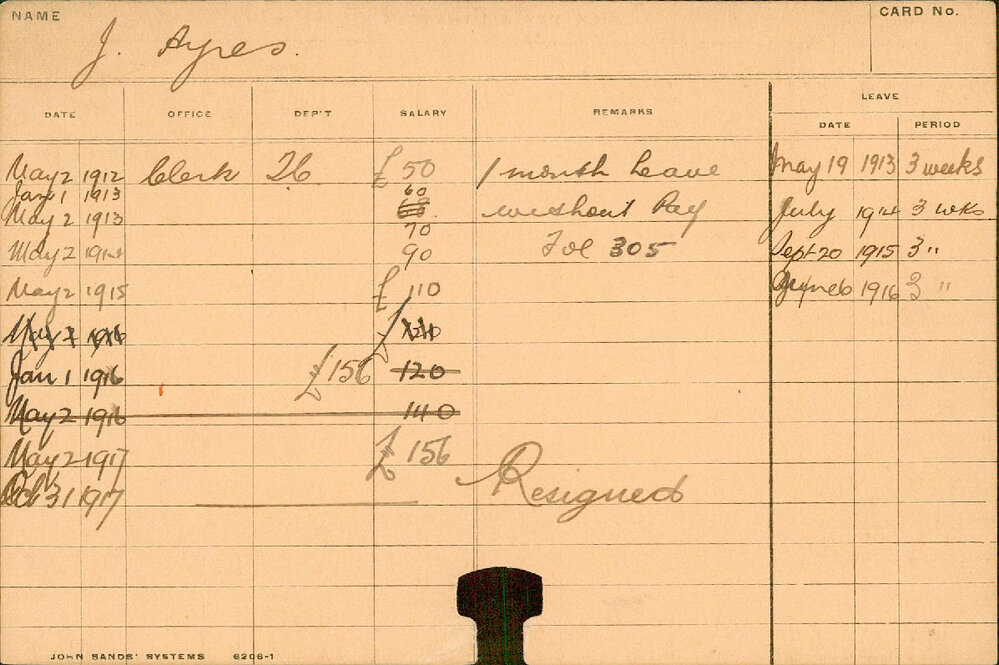 NAME
CARD No.
J. Ayres.
LEAVE
DATE OFFICE DEP'T SALARY REMARKS DATE PERIOD
May 2 1912 Clerk 26 £ 50 1 month Leave May 19 1913 3 weeks
Jan 1 1913 60
May 2 1913 without Pay July 1914 3 wks
70
May 2 1914 90 Fol 305 Sept 20 1915 3 "
May 2 1915 £ 110 June 6 1916 3 "
May 2 1916 £
Jan 1 1916 £156 120
May 2 1916 140
May 2 1917 £ 156
Oct 31 1917 Resigned
JOHN SANDS' SYSTEMS 6206-1